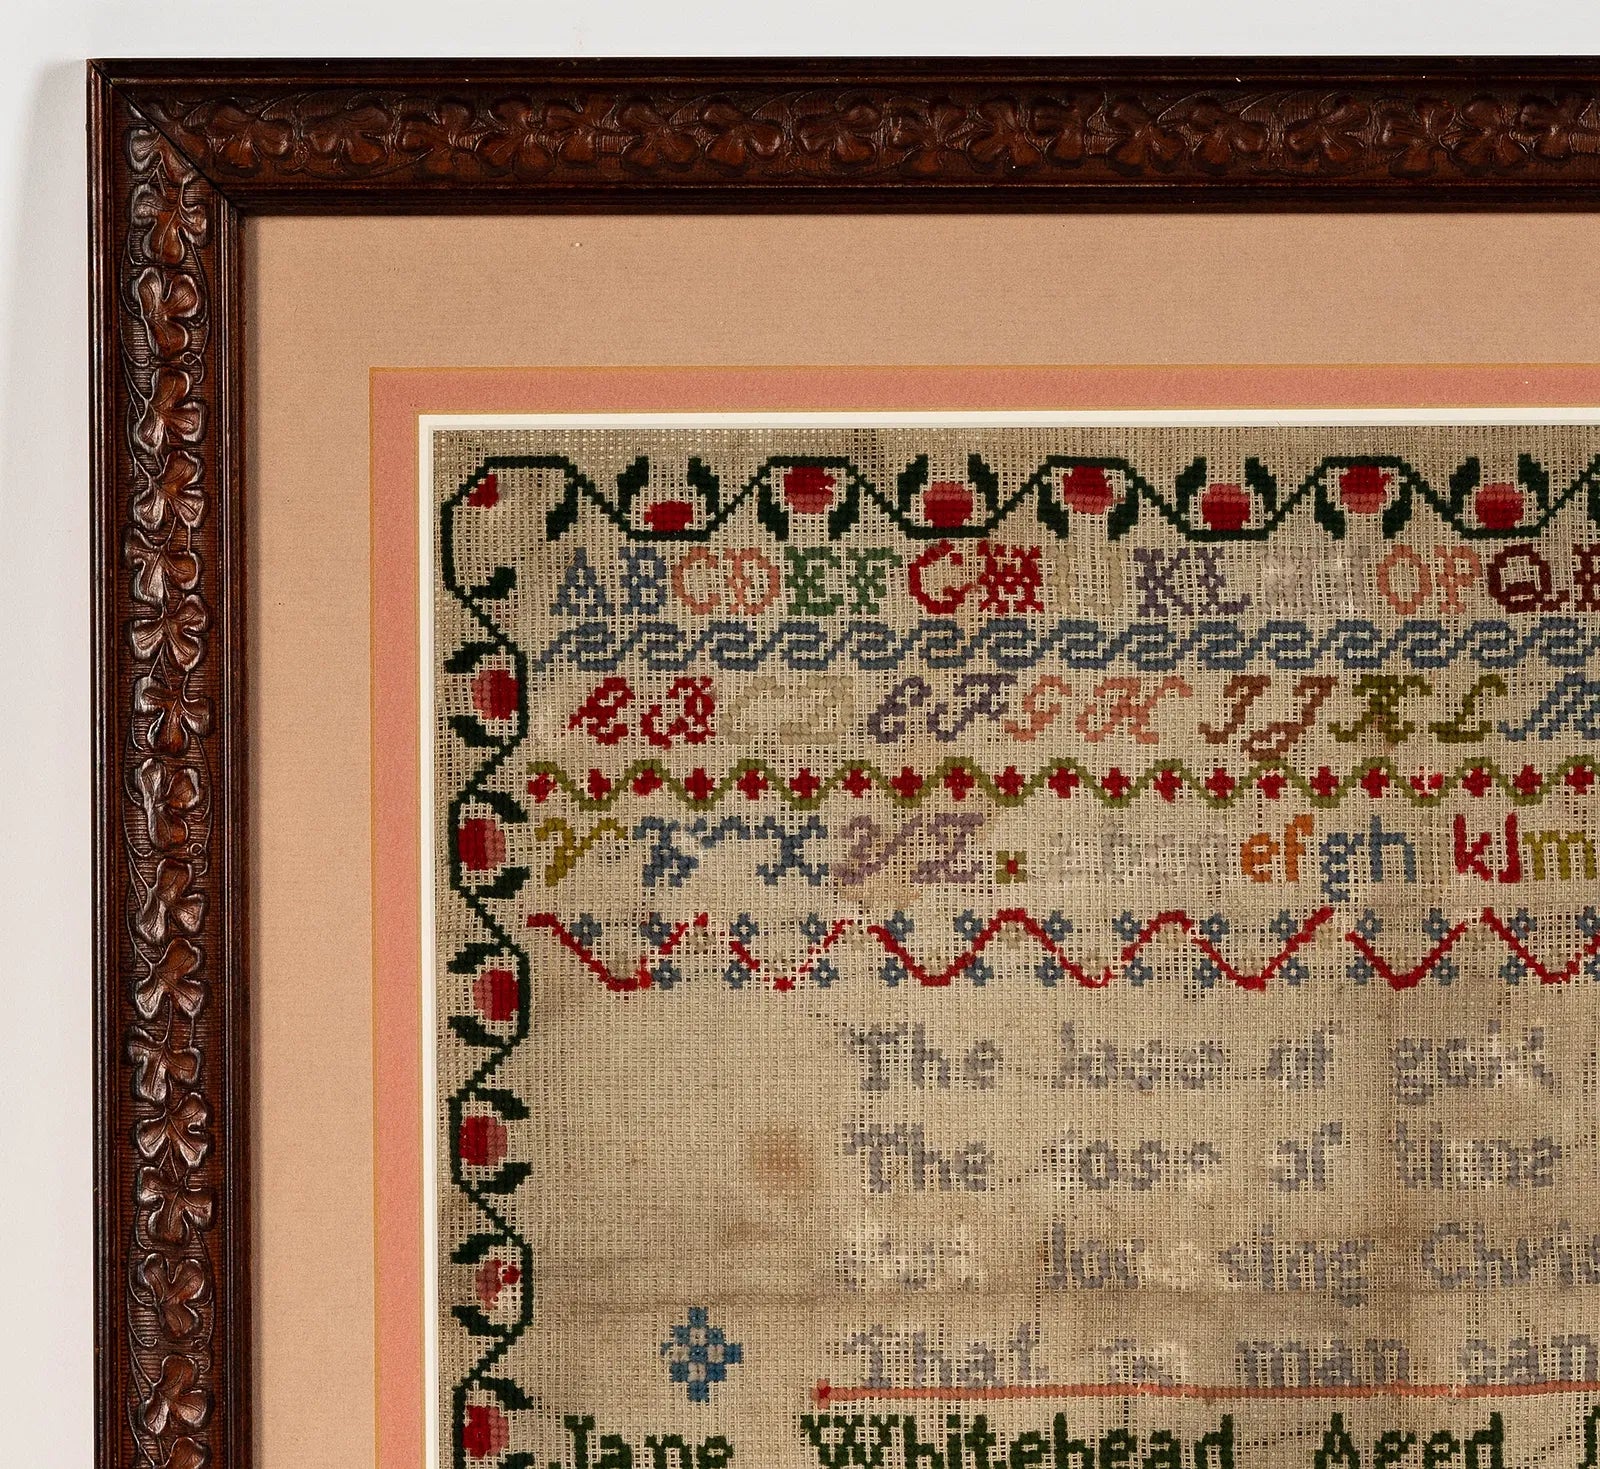 ABCDEFGHIJKLMNOPQ
ABCDEFGHIJKLM
VWXYZ abcdefghijklm
The loss of gold
The loss of time
That no man can
Jane Whitehead Aged